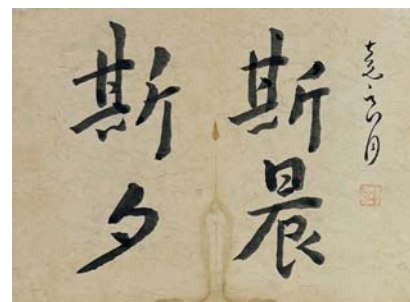 斯晨
斯夕